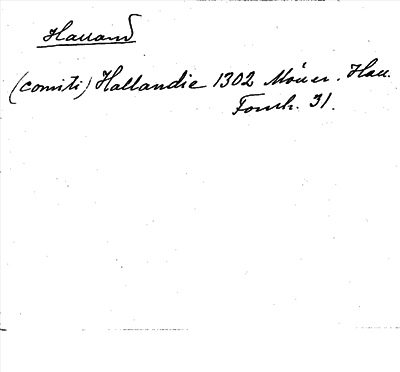 Halland
(comiti) Hallandie 1302 Mőller. Hall.
Fornh. 31.